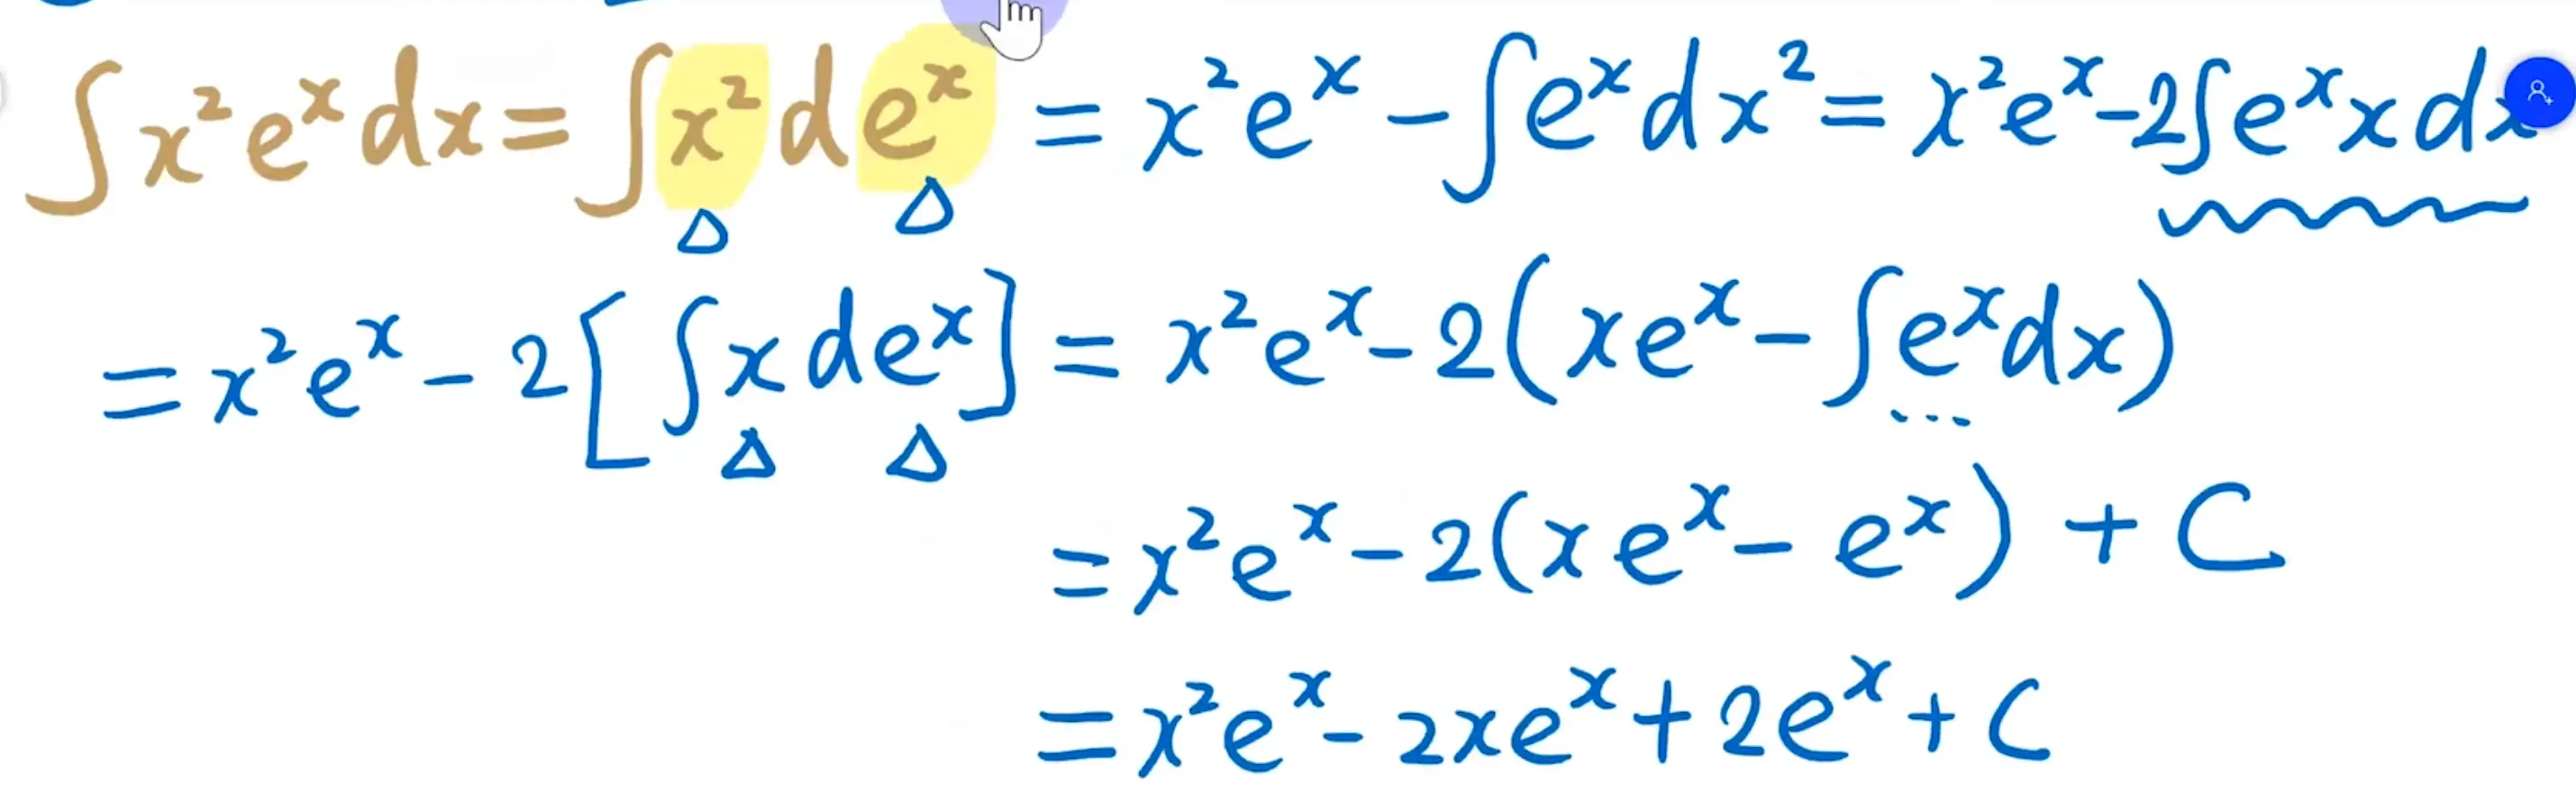 ∫x²eˣdx = ∫x²deˣ = x²eˣ - ∫eˣdx² = x²eˣ - 2∫eˣxdx
= x²eˣ - 2[∫xdeˣ] = x²eˣ - 2(xeˣ - ∫eˣdx)
= x²eˣ - 2(xeˣ - eˣ) + C
= x²eˣ - 2xeˣ + 2eˣ + C